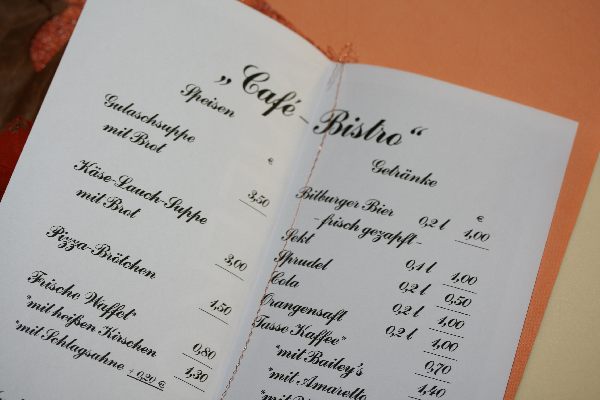 „Café-Bistro“
Speisen
€
Gulaschsuppe
mit Brot 3,50
Käse-Lauch-Suppe
mit Brot 3,00
Pizza-Brötchen 1,50
Frische Waffel* 0,80
*mit heißen Kirschen 1,30
*mit Schlagsahne + 0,20 €
Getränke
€
Bitburger Bier 0,2 l 1,00
-frisch gezapft-
Sekt 0,1 l 1,00
Sprudel 0,2 l 0,50
Cola 0,2 l 1,00
Orangensaft 0,2 l 1,00
Tasse Kaffee* 0,70
*mit Bailey's 1,40
*mit Amaretto